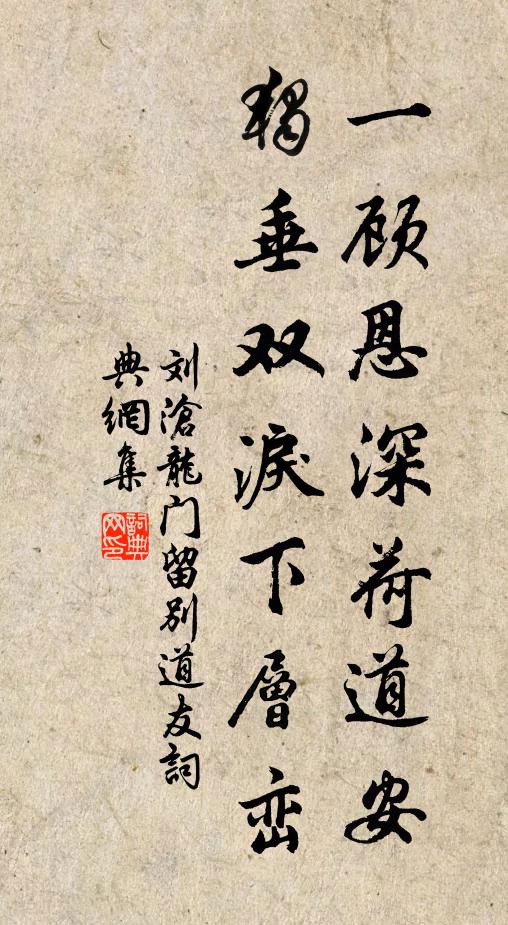 一顾恩深荷道安
独垂双淚下層峦
刘滄龍门留别道友詞
典網集
詞典网印